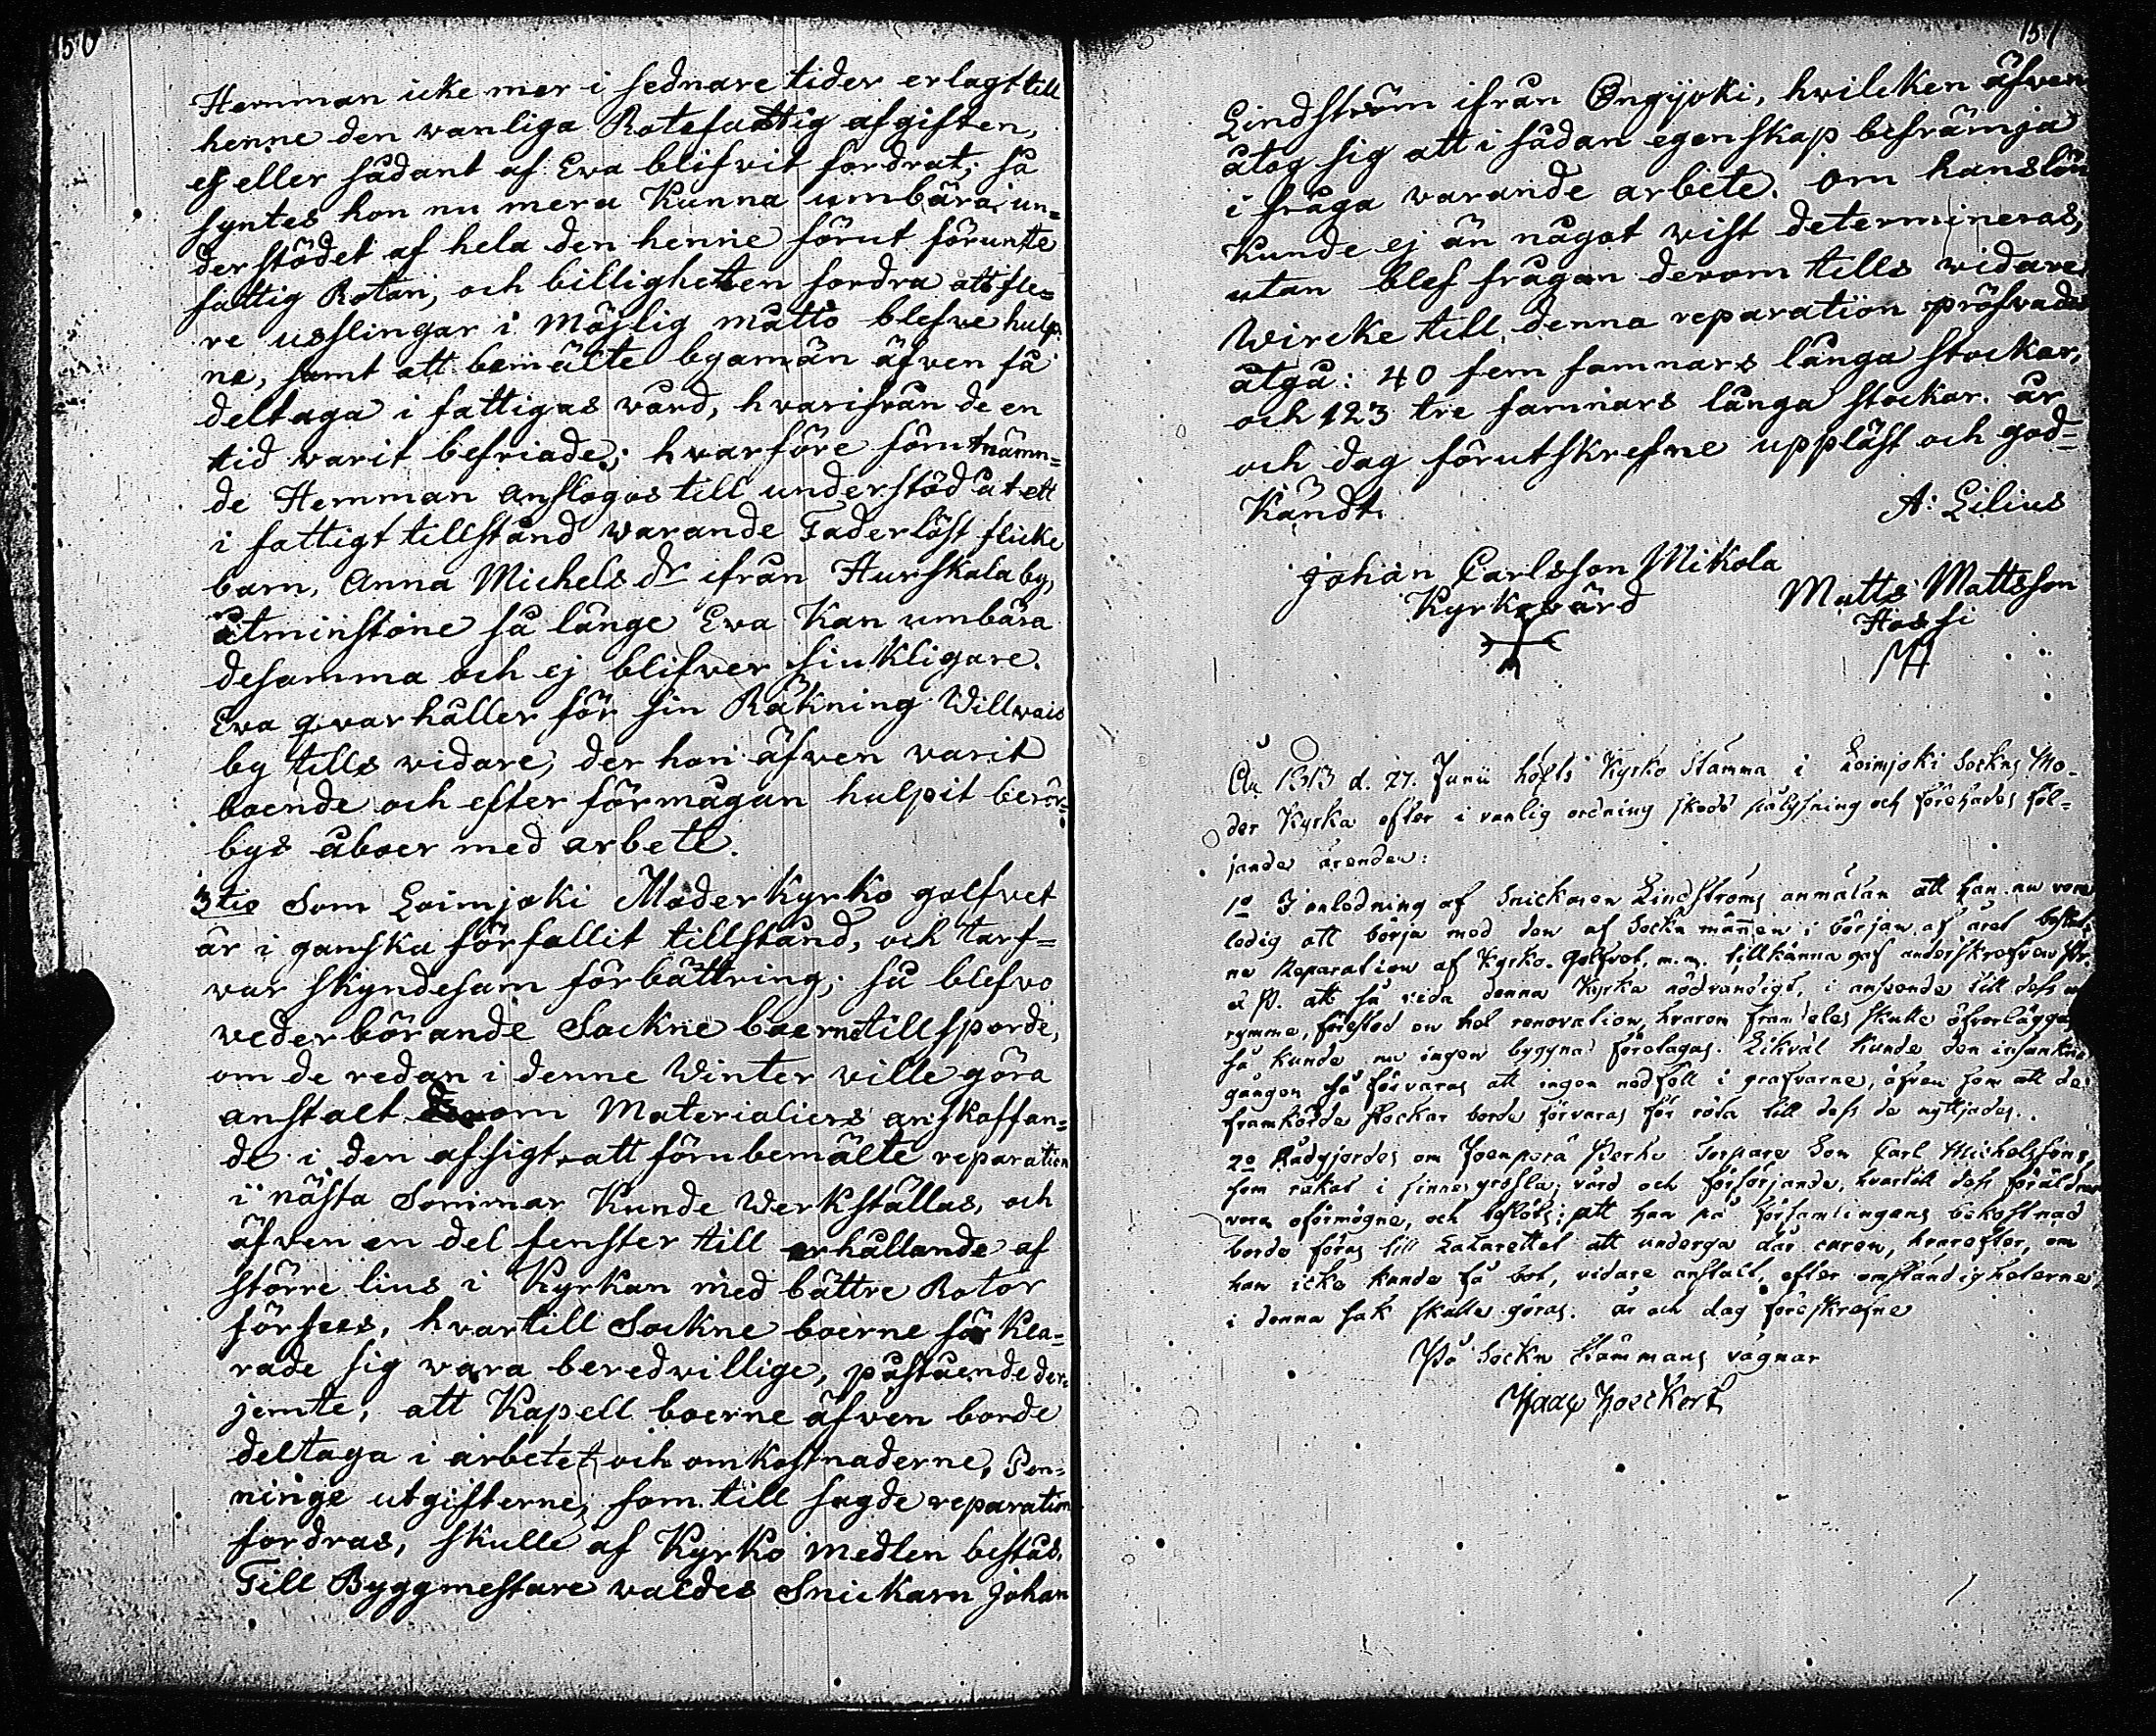 150
Hemman icke mer i sednare tider erlagt till
henne den vanliga Rotefattig afgiften,
ej eller sådant af Eva blifvit fordrat; så
syntes hon nu mera kunna umbära un=
derstödet af hela den henne förut förunte
fattig Rotan, och billigheten fordra att fle=
re usslingar i möjlig måtto blefve hulp=
ne, samt att bemälte byamän äfven få
deltaga i fattigas vård, hvarifrån de en
tid varit befriade; hvarföre förutnämn=
de Hemman anslogos till understöd åt ett
i fattigt tillstånd varande Faderlöst flicke
barn, Anna Michels dr ifrån Hurskala by,
åtminstone så länge Eva kan umbära
desamma och ej blifver siukligare.
Eva qvarhåller för sin Räkning Willvais
by tills vidare, der hon äfven varit
boende och efter förmågan hulpit berör=
bys åboer med arbete.
3tio Som Loimjoki Moderkyrko golfvet
är i ganska förfallit tillstånd, och tarf=
var skyndesam förbättring; så blefvo
vederbörande Sockne boerne tillsporde,
om de redan i denne Winter ville göra
anstalt om Materialiers anskaffan=
de i den afsigt, att förubemälte reparation
i nästa Sommar kunde werkställas, och
äfven en del fenster till erhållande af
större lius i Kyrkan med bättre Rotor
förses, hvartill Sockne boerne förkla=
rade sig vara beredvillige, påstående der=
jemte, att Kapell boerne äfven borde
deltaga i arbetet och omkostnaderne, Pen=
ninge utgifterne, som till sagde reparation
fordras, skulle af Kyrko medlen bestås.
Till Byggmestare valdes Snickarn Johan
151
Lindström ifrån Öngijoki, hvilcken äfven
åtog sig att i sådan egenskap befrämja
i fråga varande arbete. Om hans lön
kunde ej än något vist determineras,
utan blef frågan derom tills widare
Wircke till denna reparation pröfvades
åtgå: 40 fem famnars långa stockar,
och 123 tre famnars långa stockar. år
och dag förutskrefne uppläst och god=
kändt.
A: Lilius
Johan Carlsson Mikola
Kyrkovärd
Matts Mattsson
Hossi
År 1813 d. 27. Junii hölts Kyrko Stämma i Loimjoki Sockns Mo-
der Kyrka efter i vanlig ordning skedd pålysning och förehades föl=
jande ärenden:
1o I anledning af Snickaren Lindströms anmälan att han nu vore
ledig att börja med den af Sockn männen i början af året bestäl=
ne Reparation af Kyrko-Golfvet, m.m. tillkänna gaf underskrefven
att så vida denna Kyrka nödvändigt, i anseende till dess
rymme, förestod en hel renovation, hvarom framdeles skulle öfverläggas
så kunde nu ingen byggnad företagas. Likväl kunde den insunkna
gången så förvaras att ingen nedföll i grafvarne, äfven som att de
framkörde stockar borde förvaras för röta till dess de nyttjades.
2o Rådgjordes om Joenperä Perho Torpare Son Carl Michelssons,
som råkat i sinnes yrsla, vård och försörjande, hvartill dess föräldrar
voro oförmögne, och beslöts; att han på församlingens bekostnad
borde föras till Lazarettet att undergå där curen, hvarefter, om
han icke kunde få bot, vidare anstalt, efter omständigheterne
i denna sak skulle göras. år och dag föreskrefne
På Sockn Stämmans vägnar